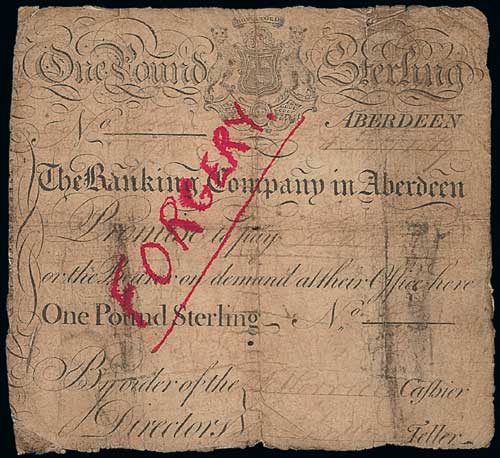 BON ACCORD
One Pound Sterling
No. ABERDEEN
The Banking Company in Aberdeen
Promise to pay
or the Bearer on demand at their Office here
One Pound Sterling No.
By order of the Cashier
Directors Teller
FORGERY.